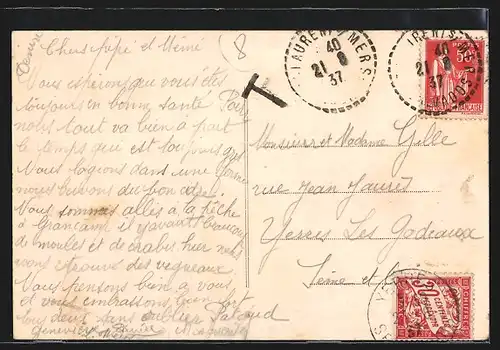 Chers pépé et Mémé
Nous espérons que vous êtes
toujours en bonne santé Pour
nous tout va bien à part
le temps que est toujours gris
Nous logeons dans une ferme
nous buvons du bon cidre.
Nous sommes allés à la pêche
à Grancamp il y avait beaucoup
de moules et de crabes hier nous
avons trouvé des
Nous pensons bien à vous
et vous embrassons bien
tous deux sans oublier Pataud
Geneviève
8
T
LAURENT S MER
40
21 8
37
40
21 8
37
POSTES
50c
Monsieur et Madame Gille
rue Jean Jaurès
Yerres Les Godeaux
Seine et
30 CENTIMES